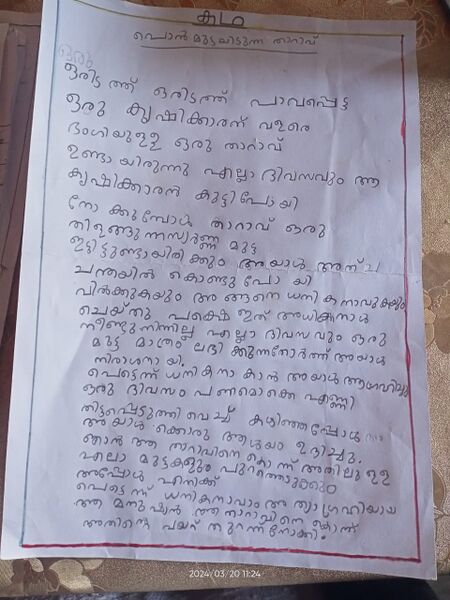 കഥ
പൊൻമുട്ടയിടുന്ന താറാവ്
ഒരു
ഒരിടത്ത് ഒരിടത്ത് പാവപ്പെട്ട
ഒരു കൃഷിക്കാരന് വളരെ
ഭംഗിയുള്ള ഒരു താറാവ്
ഉണ്ടായിരുന്നു എല്ലാ ദിവസവും ആ
കൃഷിക്കാരൻ കൂട്ടിപോയി
നോക്കുമ്പോൾ താറാവ് ഒരു
തിളങ്ങുന്നസ്വർണ്ണ മുട്ട
ഇട്ടിട്ടുണ്ടായിരിക്കും അയാൾ അത് ച
ചന്തയിൽ കൊണ്ടുപോയി
വിൽക്കുകയും അങ്ങനെ ധനികനാവുകയും
ചെയ്തു പക്ഷെ ഇത് അധികനാൾ
നീണ്ടുനിന്നില്ല എല്ലാ ദിവസവും ഒരു
മുട്ട മാത്രം ലഭിക്കുന്നതോർത്ത് അയാൾ
നിരാശനായി.
പെട്ടെന്ന് ധനികനാകാൻ അയാൾ ആഗ്രഹിച്ചു
ഒരു ദിവസം പണമൊക്കെ എണ്ണി
തിട്ടപ്പെടുത്തി വെച്ച് കഴിഞ്ഞപ്പോൾ
അയാൾക്കൊരു ആശയം ഉദിച്ചു.
ഞാൻ ആ താറാവിനെ കൊന്ന് അതിലുള്ള
എല്ലാ മുട്ടകളും പുറത്തെടുക്കും
അപ്പോൾ എനിക്ക്
പെട്ടെന്ന് ധനികനാവാം അത്യാഗ്രഹിയായ
ആ മനുഷ്യൻ ആ താറാവിനെ കൊന്ന്
അതിന്റെ വയറ് തുറന്ന് നോക്കി.
2024/03/20 11:24